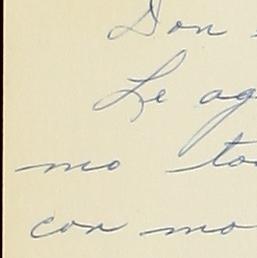 Don
Le ag
mo to
con mo